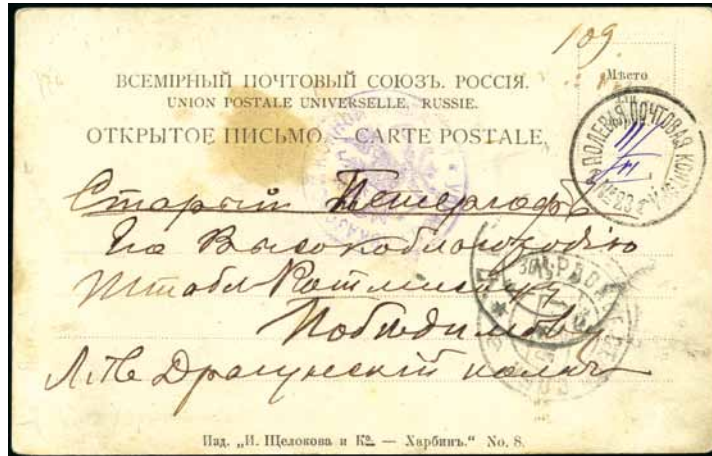 109
ВСЕМІРНЫЙ ПОЧТОВЫЙ СОЮЗЪ. РОССІЯ.
UNION POSTALE UNIVERSELLE. RUSSIE.
ОТКРЫТОЕ ПИСЬМО. — CARTE POSTALE.
Мѣсто
ПОЛЕВАЯ ПОЧТОВАЯ № 23
Старый Петергофъ
Его Высокоблагородію
Штабъ-Ротмистру
Побѣдимову
Драгунскій полкъ
Изд. „И. Щелокова и Кº. — Харбинъ." No. 8.